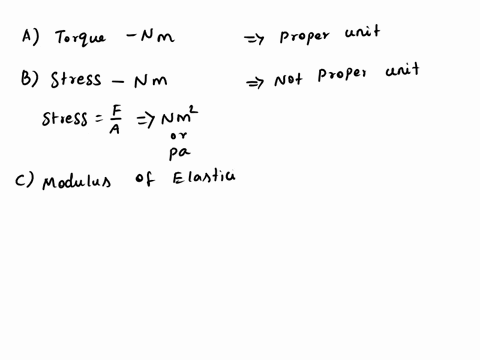 A) Torque - Nm => Proper unit
B) Stress - Nm => Not Proper unit
Stress = F/A => Nm²
or
pa
C) Modulus of Elastic